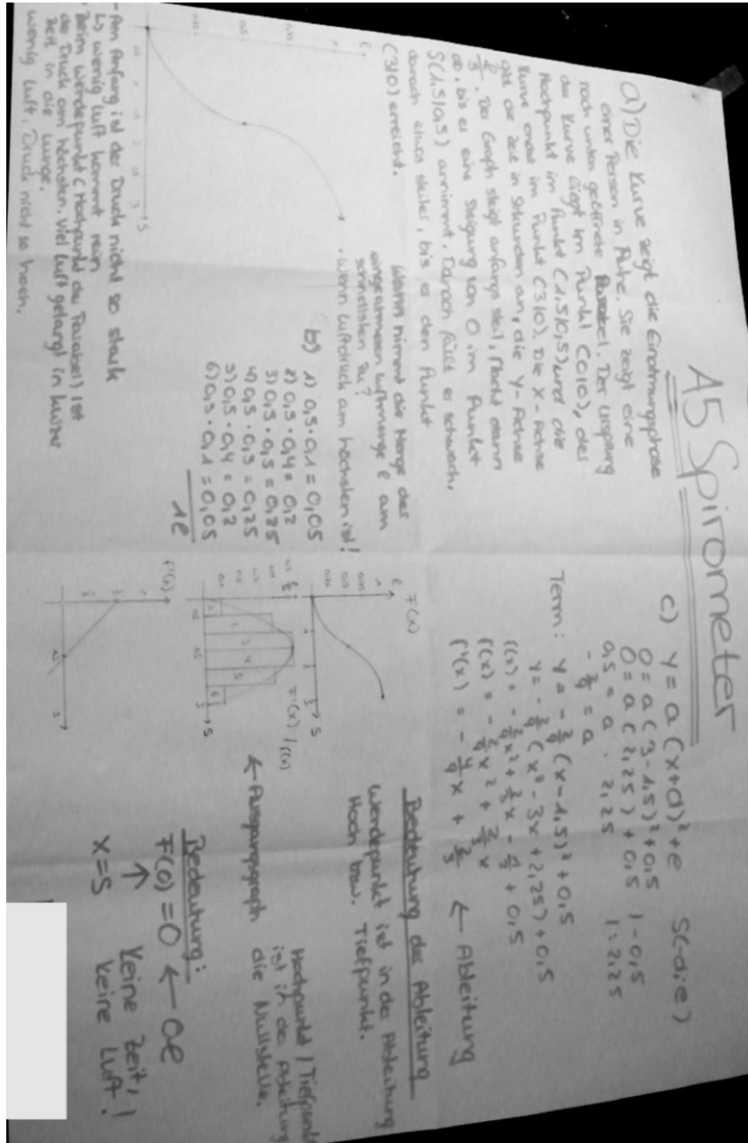 A5 Spirometer
a) Die Kurve zeigt die Einatmungsphase
einer Person in Ruhe. Sie zeigt eine
nach unten geöffnete Parabel. Der Ursprung
der Kurve liegt im Punkt (0|0), der
Hochpunkt im Punkt (1,5|0,5) und die
Kurve endet im Punkt (3|0). Die x-Achse
gibt die Zeit in Sekunden an, die y-Achse
l/s. Der Graph steigt anfangs steil, flacht dann
ab, bis er eine Steigung von 0 im Punkt
S(1,5|0,5) annimmt. Danach fällt er schwach,
danach etwas steiler, bis er den Punkt
(3|0) erreicht.
Wann nimmt die Menge der
eingeatmeten Luftmenge l am
schnellsten zu?
· Wenn Luftdruck am höchsten ist!
- Am Anfang ist der Druck nicht so stark
↳ wenig Luft kommt rein
· Beim Wendepunkt (Hochpunkt der Parabel) ist
der Druck am höchsten. Viel Luft gelangt in kurzer
Zeit in die Lunge.
wenig Luft, Druck nicht so hoch.
b) 1) 0,5 · 0,1 = 0,05
2) 0,5 · 0,4 = 0,2
3) 0,5 · 0,5 = 0,25
4) 0,5 · 0,5 = 0,25
5) 0,5 · 0,4 = 0,2
6) 0,5 · 0,1 = 0,05
1l
c) y = a (x+d)² + e S(-d|e)
0 = a (3-1,5)² + 0,5
0 = a (2,25) + 0,5 | -0,5
0,5 = a · 2,25 | : 2,25
-2/9 = a
Term: y = -2/9 (x-1,5)² + 0,5
y = -2/9 (x² - 3x + 2,25) + 0,5
f(x) = -2/9 x² + 2/3 x - 1/2 + 0,5
f(x) = -2/9 x² + 2/3 x
f'(x) = -4/9 x + 2/3 ← Ableitung
F(x)
F'(x) / f(x)
f'(x)
← Ausgangsgraph
Bedeutung der Ableitung
Wendepunkt ist in der Ableitung
Hoch bzw. Tiefpunkt.
Hochpunkt / Tiefpunkt
ist in der Ableitung
die Nullstelle.
Bedeutung:
F(0) = 0 ← 0l
↑ Keine Zeit,
x=s keine Luft!